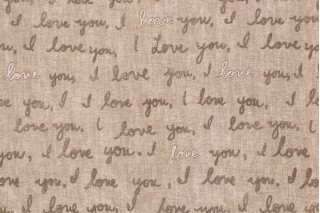 I love you, I love you, I love you, I
you, I love you, I Love you, I love
love you, I love you, I love you, I
love you, I love you, I love you, I love
love you, I love you, I love you, I
you, I love you, I love you, I love
love you, I love you, I love you, I